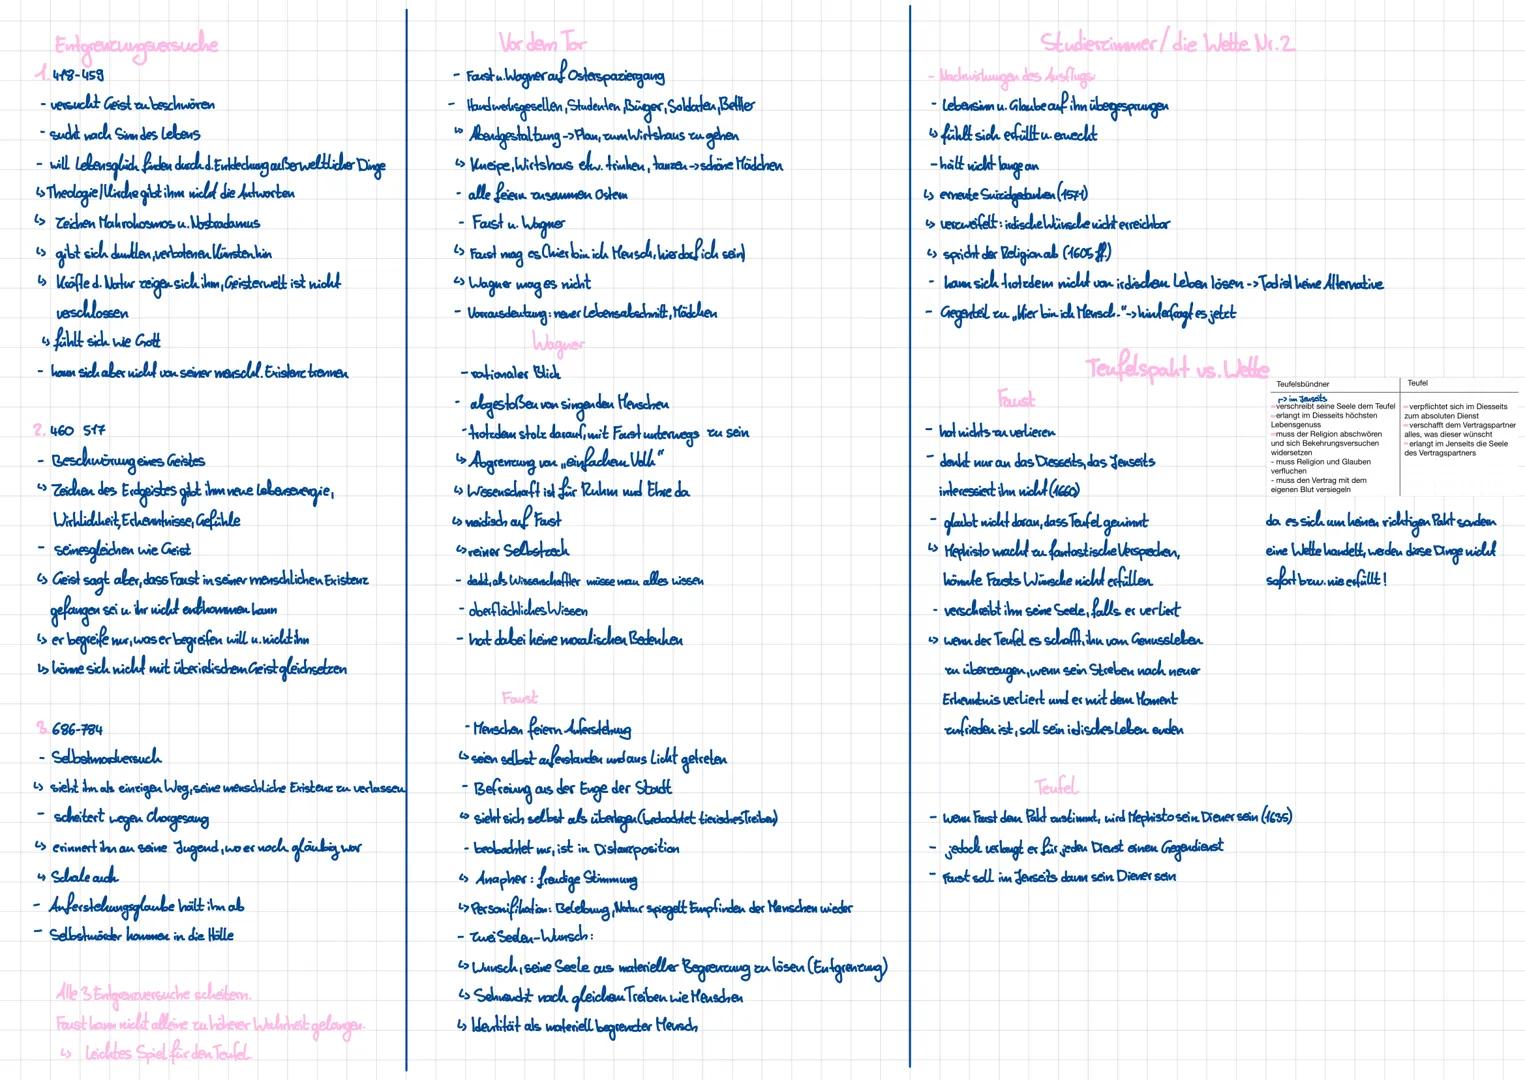 Entgrenzungsversuche
1. 418-459
- versucht Geist zu beschwören
- sucht nach Sinn des Lebens
- will Lebensglück finden durch d. Entdeckung außerweltlicher Dinge
↳ Theologie/Kirche gibt ihm nicht die Antworten
↳ Zeichen Makrokosmos u. Nostradamus
↳ gibt sich dunklen, verbotenen Künsten hin
↳ Kräfte d. Natur zeigen sich ihm, Geisterwelt ist nicht
verschlossen
↳ fühlt sich wie Gott
- kann sich aber nicht von seiner menschl. Existenz trennen
2. 460 517
- Beschwörung eines Geistes
↳ Zeichen des Erdgeistes gibt ihm neue Lebensenergie,
Wirklichkeit, Erkenntnisse, Gefühle
- seinesgleichen wie Geist
↳ Geist sagt aber, dass Faust in seiner menschlichen Existenz
gefangen sei u. ihr nicht entkommen kann
↳ er begreife nur, was er begreifen will u. nicht ihn
↳ könne sich nicht mit überirdischem Geist gleichsetzen
3. 686-784
- Selbstmordversuch
↳ sieht ihn als einzigen Weg, seine menschliche Existenz zu verlassen
- scheitert wegen Chorgesang
↳ erinnert ihn an seine Jugend, wo er noch gläubig war
↳ Schale auch
- Auferstehungsglaube hält ihn ab
- Selbstmörder kommen in die Hölle
Alle 3 Entgrenzversuche scheitern.
Faust kann nicht alleine zu höherer Wahrheit gelangen.
↳ Leichtes Spiel für den Teufel
Vor dem Tor
- Faust u. Wagner auf Osterspaziergang
- Handwerksgesellen, Studenten, Bürger, Soldaten, Bettler
↳ Abendgestaltung -> Plan, zum Wirtshaus zu gehen
↳ Kneipe, Wirtshaus etw. trinken, tanzen -> schöne Mädchen
- alle feiern zusammen Ostern
- Faust u. Wagner
↳ Faust mag es (hier bin ich Mensch, hier darf ich sein)
↳ Wagner mag es nicht
- Vorrausdeutung: neuer Lebensabschnitt, Mädchen
Wagner
- rationaler Blick
- abgestoßen von singenden Menschen
- trotzdem stolz darauf, mit Faust unterwegs zu sein
↳ Abgrenzung von „einfachem Volk"
↳ Wissenschaft ist für Ruhm und Ehre da
↳ neidisch auf Faust
↳ reiner Selbstzeck
- denkt, als Wissenschaftler müsse man alles wissen
- oberflächliches Wissen
- hat dabei keine moralischen Bedenken
Faust
- Menschen feiern Auferstehung
↳ seien selbst auferstanden und ans Licht getreten
- Befreiung aus der Enge der Stadt
↳ sieht sich selbst als überlegen (beobachtet tierisches Treiben)
- beobachtet nur, ist in Distanzposition
↳ Anapher: freudige Stimmung
↳ Personifikation: Belebung, Natur spiegelt Empfinden der Menschen wieder
- Zwei Seelen-Wunsch:
↳ Wunsch, seine Seele aus materieller Begrenzung zu lösen (Entgrenzung)
↳ Sehnsucht nach gleichem Treiben wie Menschen
↳ Identität als materiell begrenzter Mensch
Studierzimmer / die Wette Nr. 2
- Nachwirkungen des Ausflugs
- Lebenssinn u. Glaube auf ihn übergesprungen
↳ fühlt sich erfüllt u. erweckt
- hält nicht lange an
↳ erneute Suizidgedanken (1571)
↳ verzweifelt: irdische Wünsche nicht erreichbar
↳ spricht der Religion ab (1605 ff.)
- kann sich trotzdem nicht von irdischem Leben lösen -> Tod ist keine Alternative
- Gegenteil zu „Hier bin ich Mensch.." -> hinterfragt es jetzt
Teufelspakt vs. Wette
Faust
- hat nichts zu verlieren
- denkt nur an das Diesseits, das Jenseits
interessiert ihn nicht (1660)
- glaubt nicht daran, dass Teufel gewinnt
↳ Mephisto macht zu fantastische Versprechen,
könnte Fausts Wünsche nicht erfüllen
- verschreibt ihm seine Seele, falls er verliert
↳ wenn der Teufel es schafft, ihn vom Genussleben
zu überzeugen, wenn sein Streben nach neuer
Erkenntnis verliert und er mit dem Moment
zufrieden ist, soll sein irdisches Leben enden
Teufelsbündner
-> im Jenseits
-verschreibt seine Seele dem Teufel
-erlangt im Diesseits höchsten
Lebensgenuss
-muss der Religion abschwören
und sich Bekehrungsversuchen
widersetzen
- muss Religion und Glauben
verfluchen
- muss den Vertrag mit dem
eigenen Blut versiegeln
Teufel
-verpflichtet sich im Diesseits
zum absoluten Dienst
-verschafft dem Vertragspartner
alles, was dieser wünscht
-erlangt im Jenseits die Seele
des Vertragspartners
da es sich um keinen richtigen Pakt sondern
eine Wette handelt, werden diese Dinge nicht
sofort bzw. nie erfüllt!
Teufel
- wenn Faust dem Pakt zustimmt, wird Mephisto sein Diener sein (1635)
- jedoch verlangt er für jeden Dienst einen Gegendienst
- Faust soll im Jenseits dann sein Diener sein